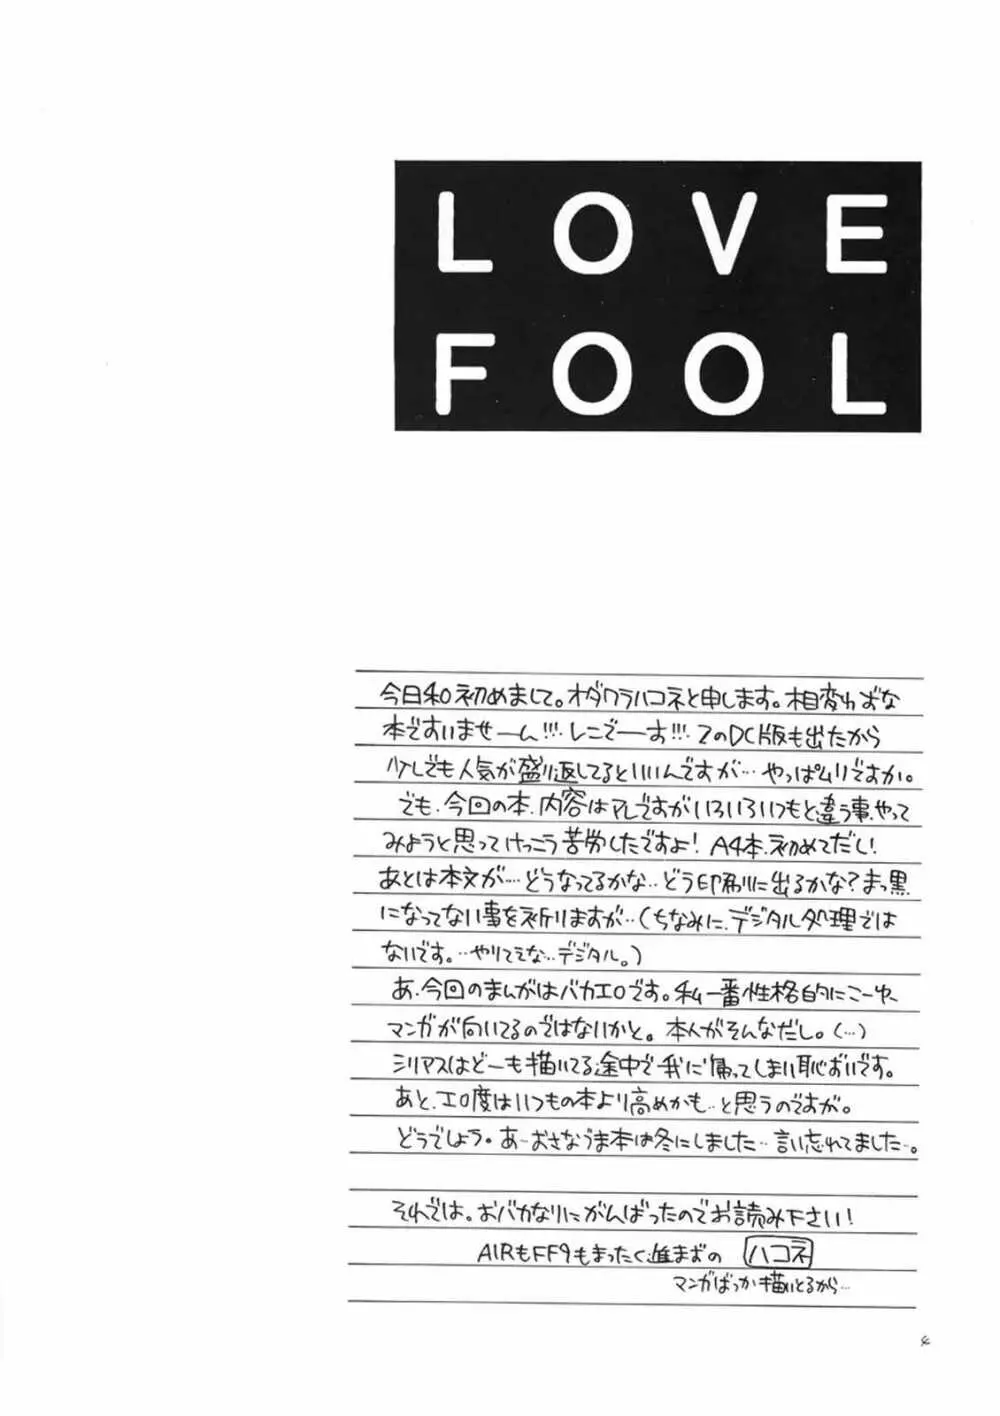 LOVE
FOOL
今日和初めまして。オダワラハコネと申します。相変わらずな
本ですいませーん!!! レニでーす!!! 2のDC版も出たから
少しでも人気が盛り返してるといいんですが…やっぱムリですか。
でも、今回の本、内容はアレですがいろいろいつもと違う事、やって
みようと思ってけっこう苦労したですよ! A4本、初めてだし!
あとは本文が…どうなってるかな‥どう印刷に出るかな?まっ黒
になってない事を祈りますが‥(ちなみに、デジタル処理では
ないです。‥やりてえな…デジタル。)
あ、今回のまんがはバカエロです。私一番性格的にこーゆー
マンガが向いてるのではないかと。本人がそんなだし。(…)
シリアスはどーも描いてる途中で我に帰ってしまい恥ずいです。
あと、エロ度はいつもの本より高めかも‥と思うのですが。
どうでしょう。あーおさなづま本は冬にしました‥言い忘れてました〜。
それでは。おバカなりにがんばったのでお読み下さい!
AIRもFF9もまったく進まずの ハコネ
マンガばっか描いとるから…
4